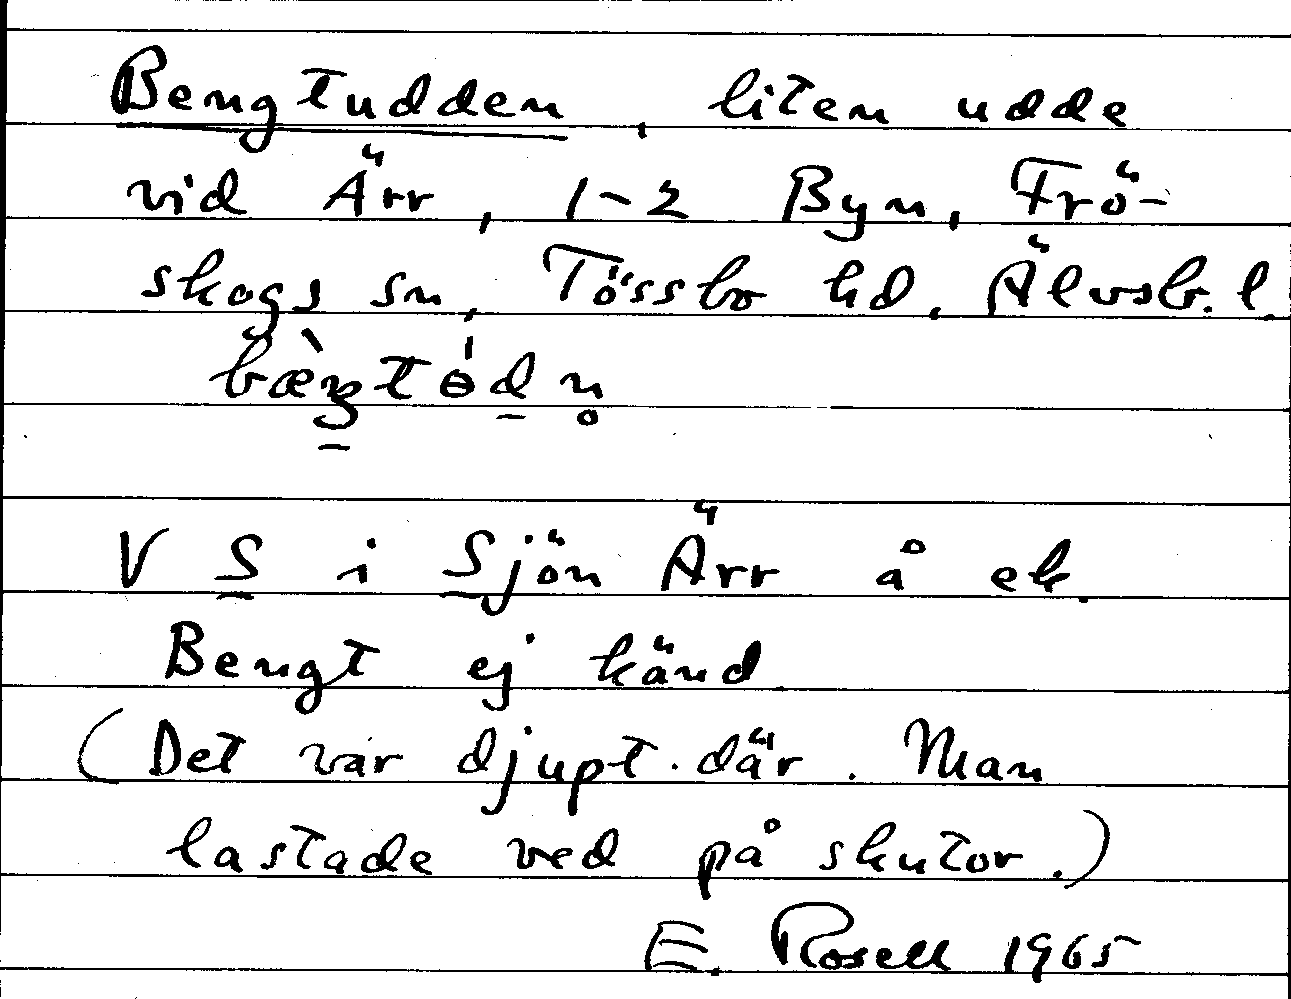 Bengtudden, liten udde
vid Ärr, 1-2 Byn, Frö-
skogs sn, Tössbo hd, Älvsb. l.
V S i Sjön Ärr å ek.
Bengt ej känd
(Det var djupt där. Man
lastade ved på skutor.)
E. Rosell 1965